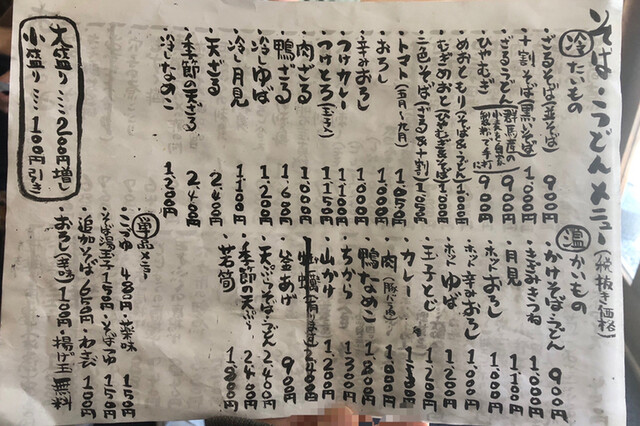 そば・うどんメニュー
(税抜き価格)
冷たいもの
ざるそば(並そば) 900円
十割そば(黒いそば) 1,000円
ざるうどん 900円
ひやむぎ 900円
群馬産の小麦を自家製粉して手打に
めおともり(そば&うどん) 1,000円
むぎめおと(ひやむぎ&そば) 1,000円
三色そば(ざる&十割) 1,050円
トマト(五月〜九月) 1,050円
おろし 1,000円
辛みおろし 1,000円
つけカレー 1,100円
つけとろ(玉子〆) 1,150円
肉ざる 1,000円
鴨ざる 1,600円
冷しゆば 1,200円
冷し月見 1,100円
天ざる 2,400円
季節の天ざる 2,400円
冷しなめこ 1,200円
大盛り ミミ 200円増し
小盛り ミミ 100円引き
温かいもの
かけそば・うどん 900円
きざみきつね 1,000円
月見 1,100円
ホットおろし 1,000円
ホット辛みおろし 1,000円
ホットゆば 1,200円
玉子とじ 1,200円
カレー
肉 1,000円
鴨なめこ 1,800円
ちから 1,300円
山かけ 1,200円
笠あげ 900円
天ぷらそば・うどん 2,400円
季節の天ぷら 2,400円
若筍 1,800円
単品メニュー
そば湯玉子 150円・そばつゆ 150円
追加そば 650円・わさび 100円
おろし(辛み) 100円・揚げ玉 無料